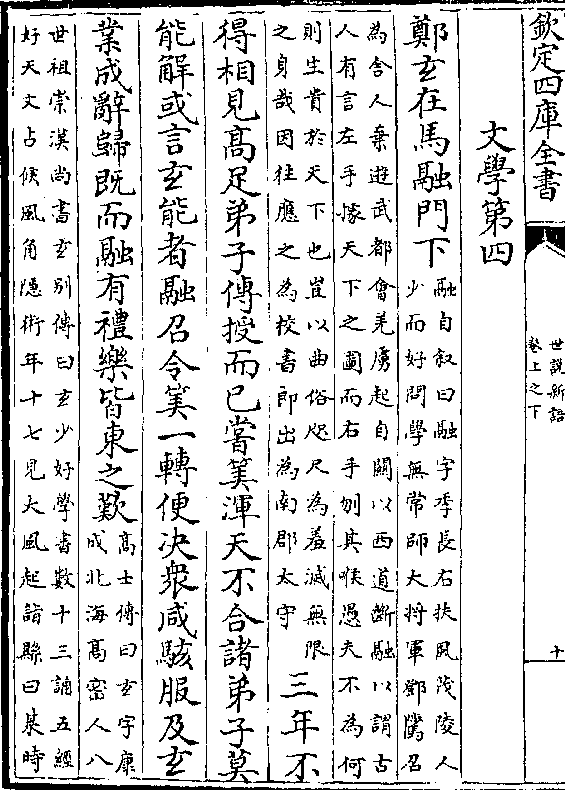 欽定四庫全書
世說新語
卷上之下
十
文學第四
鄭玄在馬融門下
融自叙曰融字季長右扶風茂陵人
少而好問學無常師大將軍鄧騭召
為舍人棄遊武都會羌虜起自關以西道斷融以謂古
人有言左手據天下之圖而右手刎其喉愚夫不為何
則生貴於天下也豈以曲俗咫尺為羞滅無限
之身哉因往應之為校書郎出為南郡太守
三年不
得相見髙足弟子傳授而已嘗筭渾天不合諸弟子莫
能解或言玄能者融召令筭一轉便决衆咸駭服及玄
業成辭歸既而融有禮樂皆東之歎
髙士傳曰玄字康
成北海髙密人八
世祖崇漢尚書玄别傳曰玄少好學書數十三誦五經
好天文占候風角隱術年十七見大風起詣縣曰某時